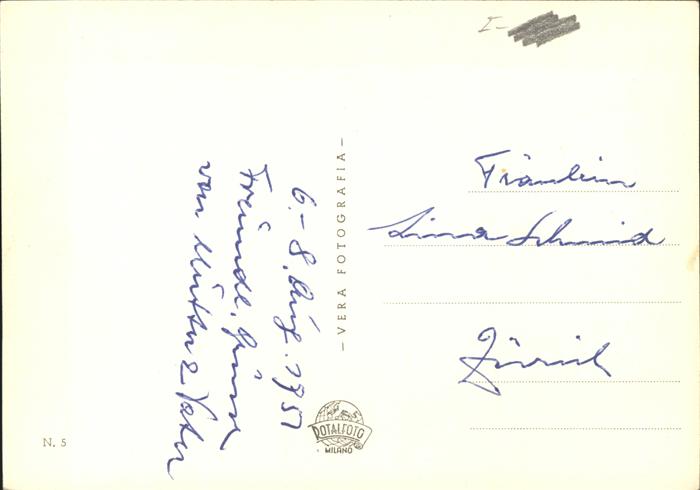 I-
6.-8. Aug. 1951
Freundl. Grüsse
von Mutter & Vater
- VERA FOTOGRAFIA -
Fräulein
Lina Schmid
Zürich
ROTALFOTO
MILANO
N. 5